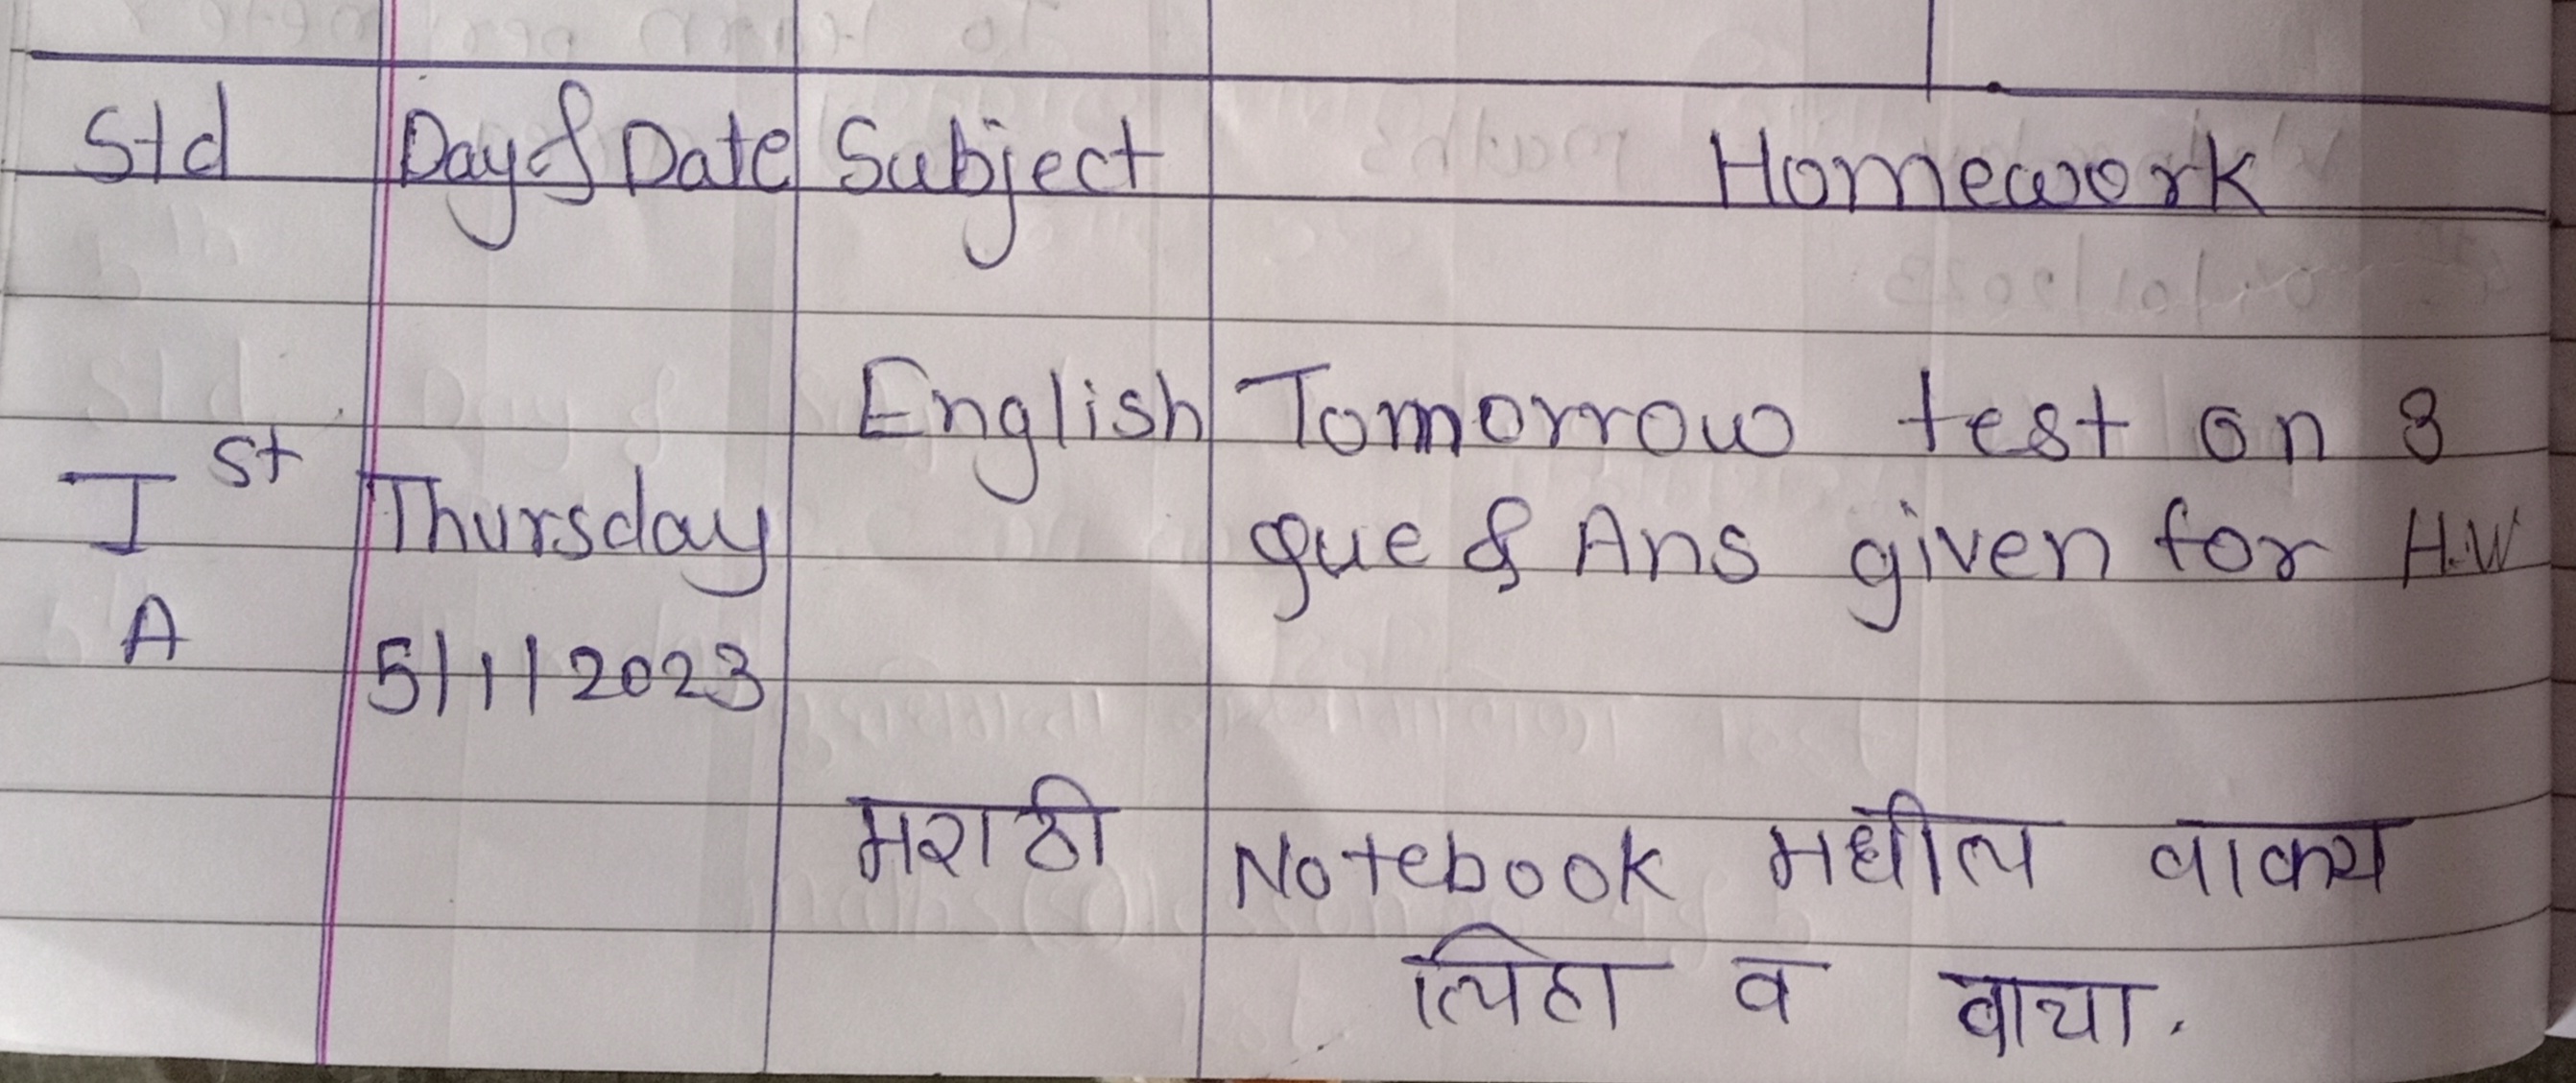 Std Day & Date Subject Homework
English Tomorrow test on 3
Ist Thursday que & Ans given for H.W
A 5/1/2023
मराठी Notebook मधील वाक्य
लिहा व वाचा.